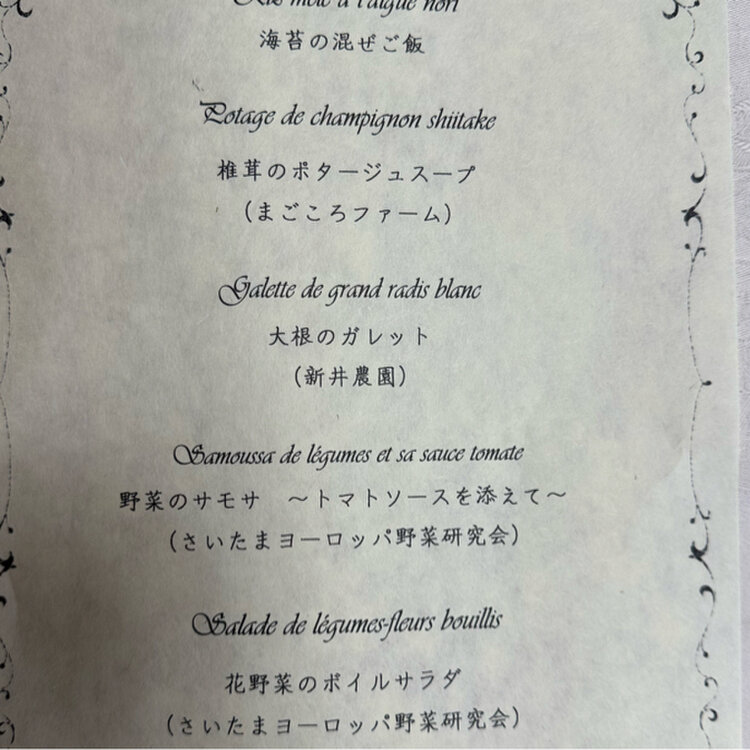 à l'algue nori
海苔の混ぜご飯
Potage de champignon shiitake
椎茸のポタージュスープ
(まごころファーム)
Galette de grand radis blanc
大根のガレット
(新井農園)
Samoussa de légumes et sa sauce tomate
野菜のサモサ　～トマトソースを添えて～
(さいたまヨーロッパ野菜研究会)
Salade de légumes-fleurs bouillis
花野菜のボイルサラダ
(さいたまヨーロッパ野菜研究会)